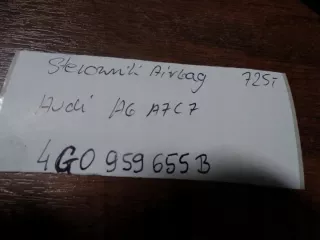 Sterownik Airbag 725T
Audi A6 A7C7
4G0 959 655B